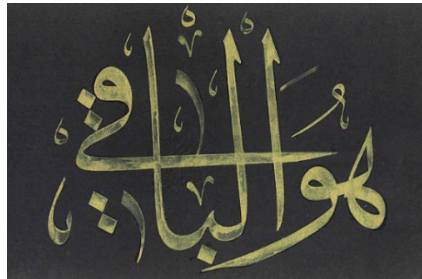 هُوَ الباقي